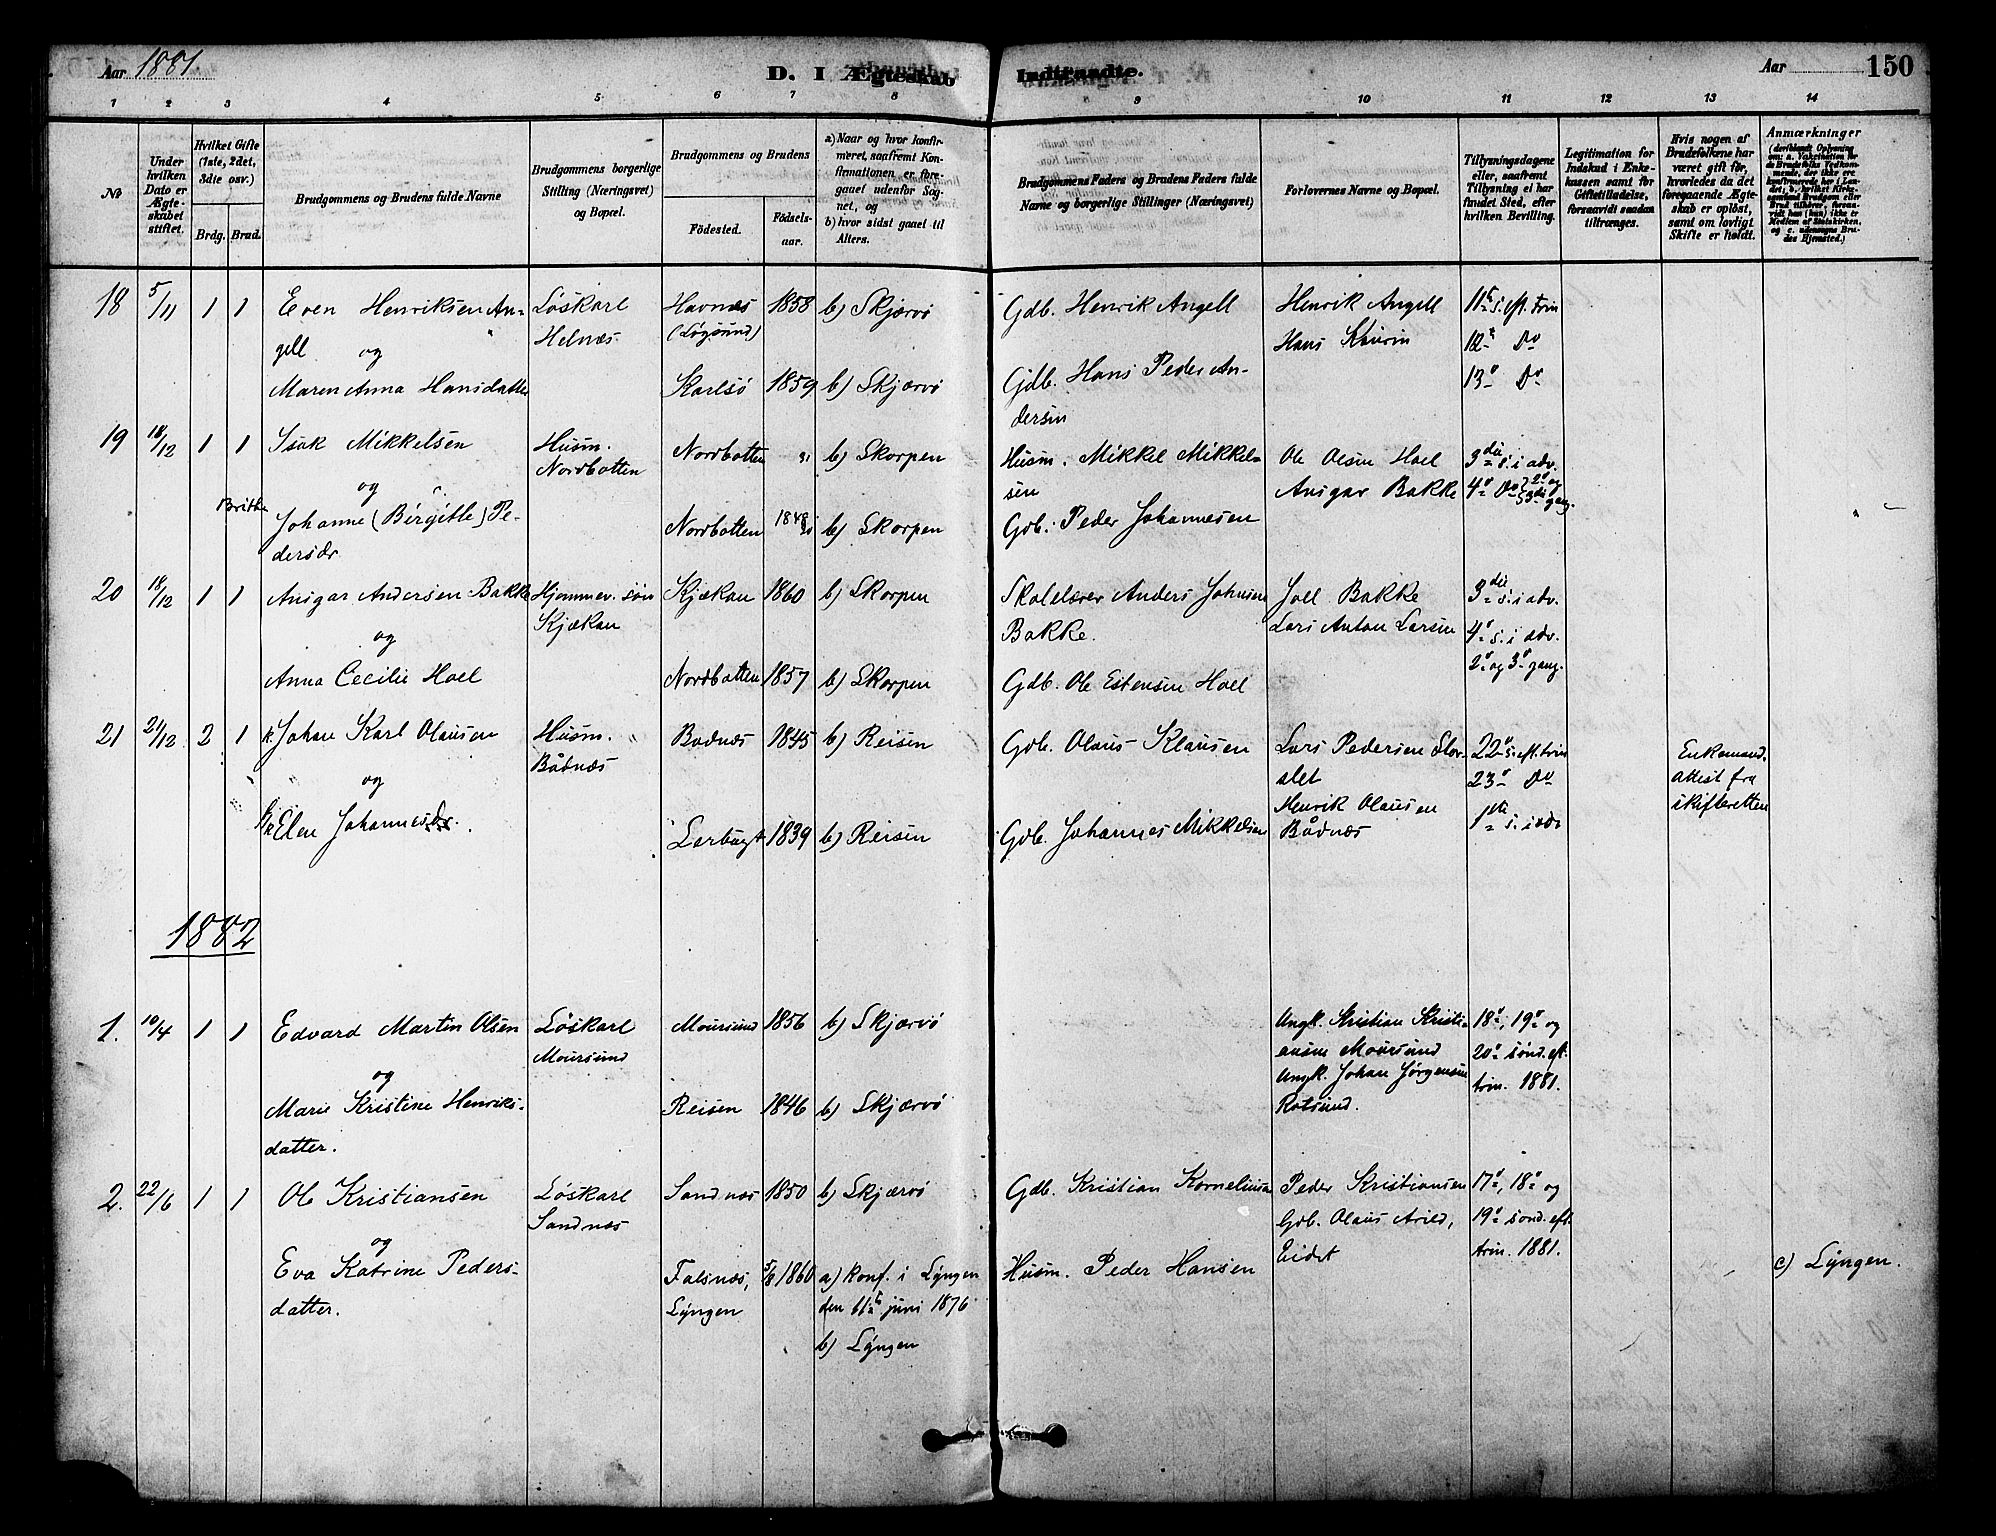 Aar 1881
D. I Ægteskab Indtraadte.
Aar 150
1 2 3 4 5 6 7 8 8 9 10 11 12 13 14
No
Under hvilken Dato er Ægteskabet stiftet.
Hvilket Gifte (1ste, 2det, 3die osv.)
Brdg. Brud.
Brudgommens og Brudens fulde Navne
Brudgommens borgerlige Stilling (Næringsvei) og Bopæl.
Brudgommens og Brudens
Födested.
Födselsaar.
a) Naar og hvor konfirmeret, saafremt Konfirmationen er foregaaet udenfor Sognet, og
b) hvor sidst gaaet til Alters.
Brudgommens Faders og Brudens Faders fulde Navne og borgerlige Stillinger (Næringsvei)
Forlovernes Navne og Bopæl.
Tillysningsdagene eller, saafremt Tillysning ei har fundet Sted, efter hvilken Bevilling.
Legitimation for Indskud i Enkekassen samt for Giftetilladelse, forsaavidt saadan tiltrænges.
Hvis nogen af Brudefolkene har været gift för, hvorledes da det foregaaende Ægteskab er oplöst, samt om lovligt Skifte er holdt.
Anmærkninger
18 5/11 1 1 Even Henriksen An- Löskarl Havnæs 1858 b) Skjærvö Gdb. Henrik Angell Henrik Angell 11te s. eft. trin
gell og Helnæs (Lögsund) Hans Kaurin 12te Do
Maren Anna Hansdatter Karlsö 1859 b) Skjærvö Gdb. Hans Peder An- 13de Do
dersen
19 18/12 1 1 Isak Mikkelsen Husm. Nordbotten b) Skorpen Husm. Mikkel Mikkel- Ole Olsen Hoel 3die s. i adv.
og Nordbotten sen Ansgar Bakke 4de Do 2de og 3die gang.
Johanne (Birgitte) Pe- Nordbotten 1848 b) Skorpen Gdb. Peder Johannesen
dersdr
20 18/12 1 1 Ansgar Andersen Bakke Hjemmev. sön Kjækan 1860 b) Skorpen Skolelærer Anders Johnsen Joel Bakke 3die s. i adv.
og Kjækan Bakke. Lars Anton Larsen 4de s. i adv.
Anna Cecilie Hoel Nordbotten 1857 b) Skorpen Gdb. Ole Estensen Hoel 2de og 3de gang.
21 21/12 2 1 k. Johan Karl Olausen Husm. Badnæs 1845 b) Reisen Gdb. Olaus Klausen Lars Pedersen Stor- 22de s. eft. trin Enkemand.
og Bådnæs slet 23de Do attest fra
Henrik Olausen skifteretten
Elen Johannesdr. Lerbugt 1839 b) Reisen Gdb. Johannes Mikkelsen Bådnæs 1ste s. i adv
1882
1. 10/4 1 1 Edvard Martin Olsen Löskarl Moursund 1856 b) Skjærvö Ungk. Kristian Kristi- 18de, 19de og
og Moursund ansen Moursund 20de sönd. eft.
Ungk. Johan Jörgensen trin. 1881.
Marie Kristine Henriks- Reisen 1846 b) Skjærvö Rotsund.
datter.
2. 22/6 1 1 Ole Kristiansen Löskarl Sandnæs 1850 b) Skjærvö Gdb. Kristian Kornelius Peder Kristiansen 17de, 18de og
og Sandnæs Gdb. Olaus Arild, 19de sönd. eft.
Eva Katrine Peders- Falsnæs, 5/8 1860 a) konf. i Lyngen Husm. Peder Hansen Eidet trin. 1881. c) Lyngen.
datter. Lyngen den 11te juni 1876
b) Lyngen